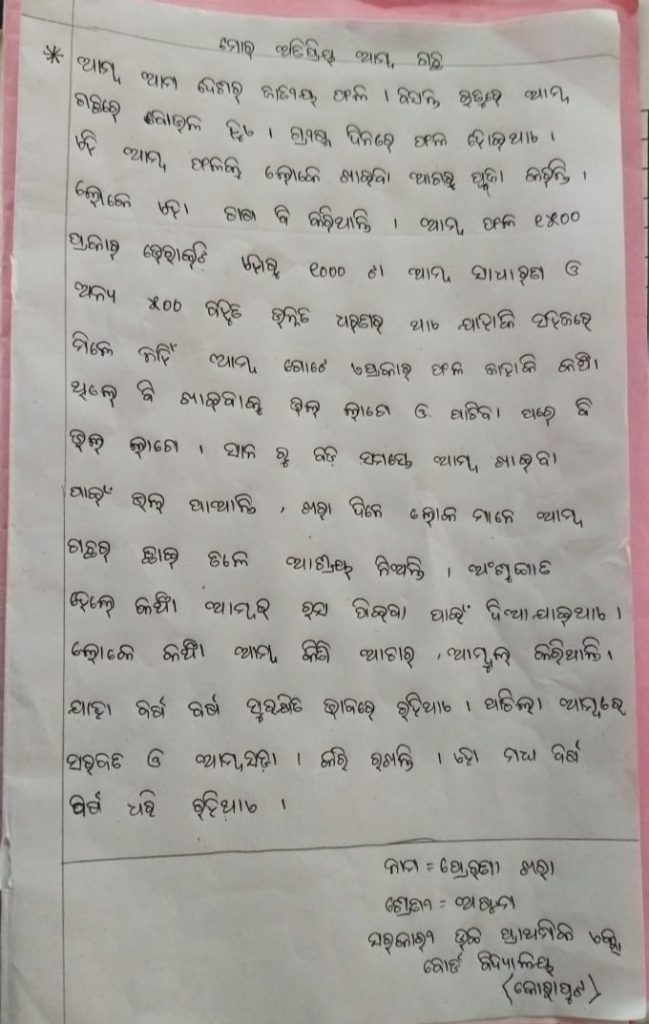 ମୋର ଅତିପ୍ରିୟ ଆମ୍ବ ଗଛ
* ଆମ୍ବ ଆମ ଦେଶର ଜାତୀୟ ଫଳ । ବସନ୍ତ ଋତୁରେ ଆମ୍ବ
ଗଛରେ ବୋଉଳ ହୁଏ । ଗ୍ରୀଷ୍ମ ଦିନରେ ଫଳ ହୋଇଥାଏ ।
ଏହି ଆମ୍ବ ଫଳକୁ ଲୋକେ ଖାଇବା ଆଗରୁ ପୂଜା କରନ୍ତି ।
ଲୋକେ ଏହା ଚାଷ ବି କରିଥାନ୍ତି । ଆମ୍ବ ଫଳ ୧୫୦୦
ପ୍ରକାର ଭେରାଇଟି ସେଥିରୁ ୧୦୦୦ ଟା ଆମ୍ବ ସାଧାରଣ ଓ
ଅନ୍ୟ ୫୦୦ ବହୁତ ଉନ୍ନତ ଧରଣର ଥାଏ ଯାହାକି ସହଜରେ
ମିଳେ ନାହିଁ ଆମ୍ବ ଗୋଟେ ଏପ୍ରକାର ଫଳ ଜାହାକି କଞ୍ଚା
ଥିଲେ ବି ଖାଇବାକୁ ଭଲ ଲାଗେ ଓ ପାଚିବା ପରେ ବି
ଭଲ ଲାଗେ । ସାନ ରୁ ବଡ଼ ସମସ୍ତେ ଆମ୍ବ ଖାଇବା
ପାଇଁ ଭଲ ପାଆନ୍ତି , ଖରା ଦିନେ ଲୋକ ମାନେ ଆମ୍ବ
ଗଛର ଛାଇ ତଳେ ଆଶ୍ରୟ ନିଅନ୍ତି । ଅଂଶୁଘାତ
ହେଲେ କଞ୍ଚା ଆମ୍ବର ରସ ପିଇବା ପାଇଁ ଦିଆଯାଇଥାଏ ।
ଲୋକେ କଞ୍ଚା ଆମ୍ବ କିଣି ଆଚାର , ଆମ୍ବୁଲ କରିଥାନ୍ତି ।
ଯାହା ବର୍ଷ ବର୍ଷ ସୁରକ୍ଷିତ ଭାବରେ ରହିଥାଏ । ପାଚିଲା ଆମ୍ବରେ
ସରବତ ଓ ଆମ୍ବସଢ଼ା । କରି ରଖନ୍ତି । ଏହା ମଧ୍ୟ ବର୍ଷ
ବର୍ଷ ଧରି ରହିଥାଏ ।
ନାମ = ପ୍ରେରଣା ଖରା
ଶ୍ରେଣୀ = ଅଷ୍ଟମ
ସରକାରୀ ଉଚ୍ଚ ପ୍ରାଥମିକ
ବୋର୍ଡ ବିଦ୍ୟାଳୟ
(କୋରାପୁଟ)